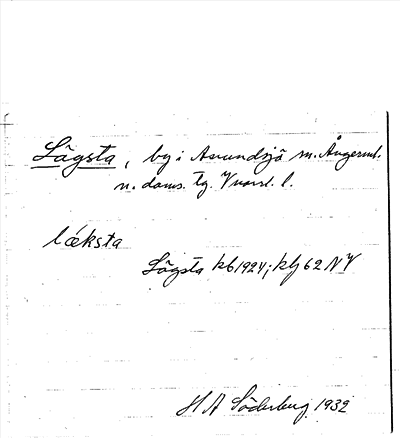 Lägsta, by i Anundsjö sn. Ångerml.
n. doms. tg. Vnorrl. l.
læksta
Lägsta kb 1924; kbj 62 NV
H A Söderberg 1932